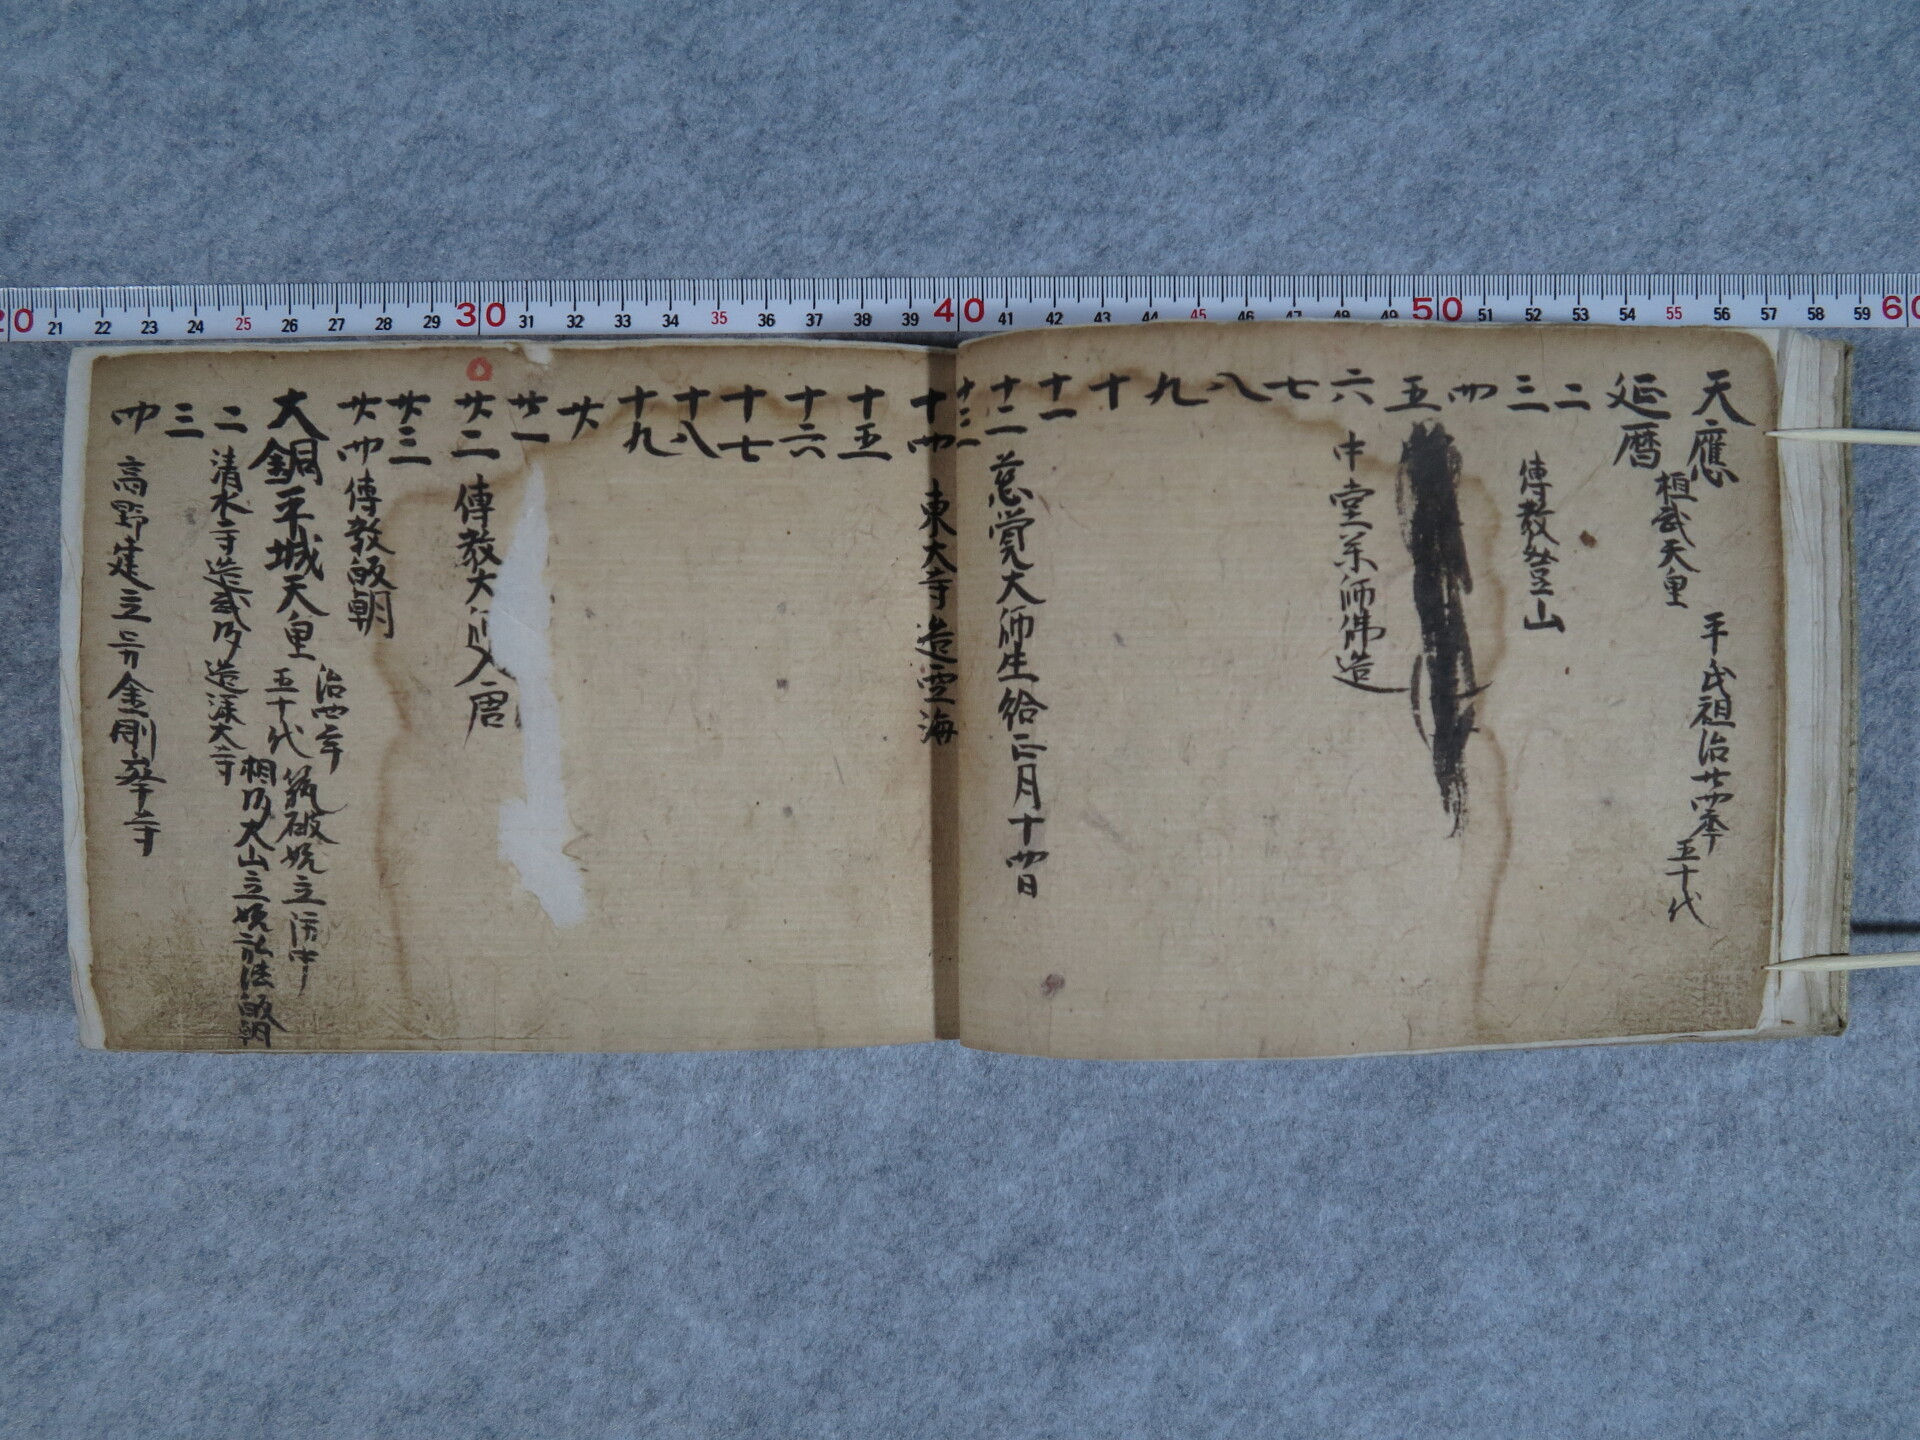 天應
平氏祖治廿四年
五十代
桓武天皇
延暦
二
三 傳教登山
四
五
六 中堂薬師佛造
七
八
九
十
十一
十二 慈覚大師生給正月十四日
十三
十四 東大寺造空海
十五
十六
十七
十八
十九
廿
廿一
廿二 傳教大 入唐
廿三
廿四 傳教皈朝
大銅 平城天皇
治四年
五十代
筑破 立
二 清水寺造 造 大寺
大山立 弘法皈朝
三
四 高野建立 金剛峯寺
20 21 22 23 24 25 26 27 28 29 30 31 32 33 34 35 36 37 38 39 40 41 42 43 44 45 46 47 48 49 50 51 52 53 54 55 56 57 58 59 60